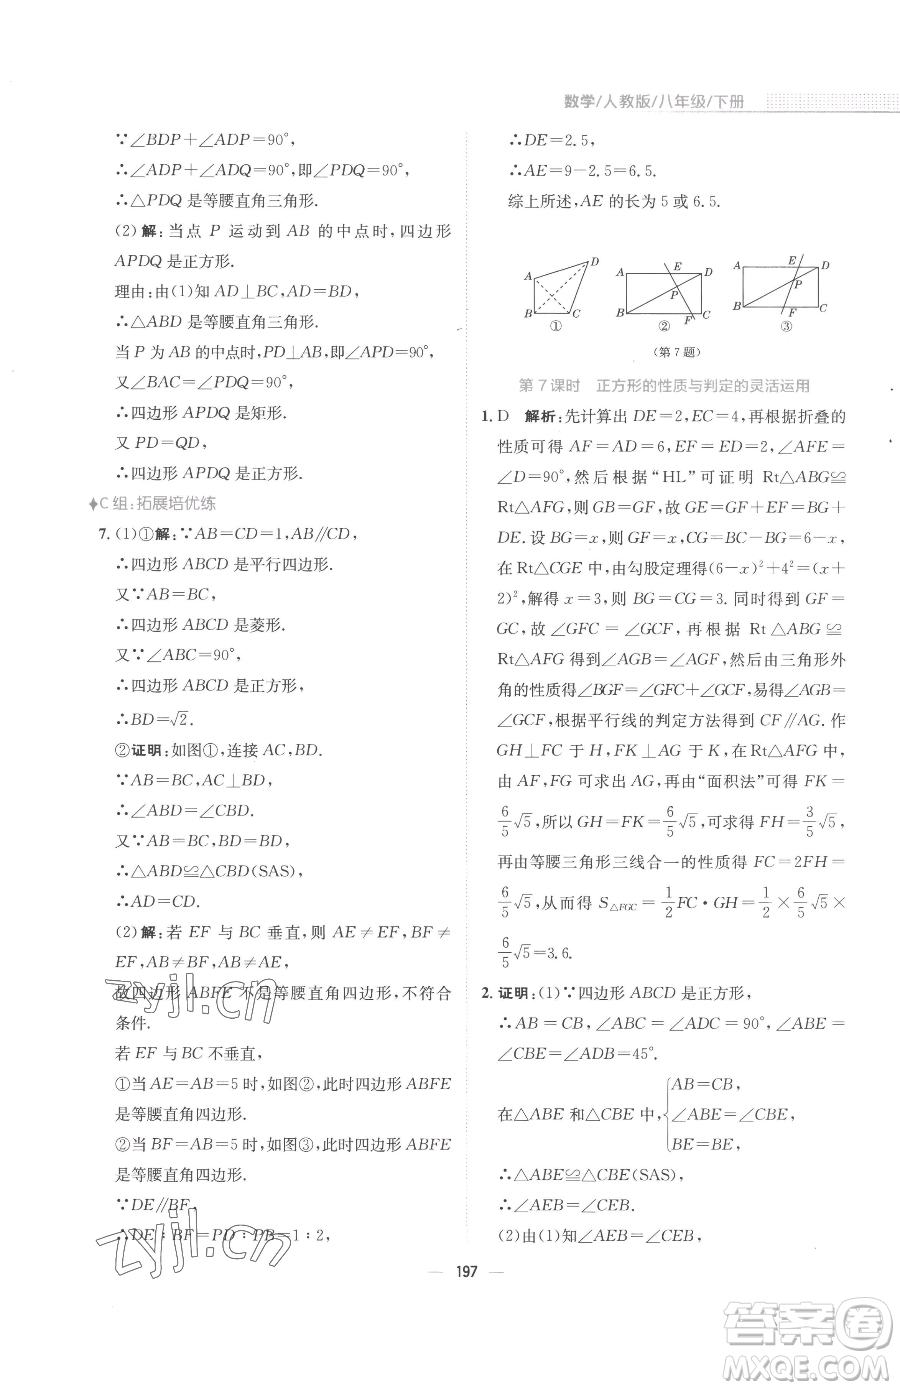 数学/人教版/八年级/下册
∵∠BDP+∠ADP=90°,
∴∠ADP+∠ADQ=90°,即∠PDQ=90°,
∴△PDQ是等腰直角三角形.
(2)解:当点 P 运动到 AB 的中点时,四边形
APDQ 是正方形.
理由:由(1)知 AD⊥BC,AD=BD,
∴△ABD 是等腰直角三角形.
当 P 为 AB 的中点时,PD⊥AB,即∠APD=90°,
又∠BAC=∠PDQ=90°,
∴四边形 APDQ 是矩形.
又 PD=QD,
∴四边形 APDQ 是正方形.
C 组:拓展培优练
7. (1)①解:∵AB=CD=1,AB∥CD,
∴四边形 ABCD 是平行四边形.
又∵AB=BC,
∴四边形 ABCD 是菱形.
又∵∠ABC=90°,
∴四边形 ABCD 是正方形,
∴BD=√2.
②证明:如图①,连接 AC,BD.
∵AB=BC,AC⊥BD,
∴∠ABD=∠CBD.
又∵AB=BC,BD=BD,
∴△ABD≌△CBD(SAS),
∴AD=CD.
(2)解:若 EF 与 BC 垂直,则 AE≠EF,BF≠
EF,AB≠BF,AB≠AE,
故四边形 ABFE 不是等腰直角四边形,不符合
条件.
若 EF 与 BC 不垂直,
①当 AE=AB=5 时,如图②,此时四边形 ABFE
是等腰直角四边形.
②当 BF=AB=5 时,如图③,此时四边形 ABFE
是等腰直角四边形.
∵DE∥BF,
∴DE:BF=PD:PB=1:2,
∴DE=2.5,
∴AE=9-2.5=6.5.
综上所述,AE 的长为 5 或 6.5.
A D B C ①
A E D P B F C ②
A E D P B F C ③
(第 7 题)
第 7 课时 正方形的性质与判定的灵活运用
1. D 解析:先计算出 DE=2,EC=4,再根据折叠的
性质可得 AF=AD=6,EF=ED=2,∠AFE=
∠D=90°,然后根据“HL”可证明 Rt△ABG≌
Rt△AFG,则 GB=GF,所以 GE=GF+EF=BG+
DE.设 BG=x,则 GF=x,CG=BC-BG=6-x,
在 Rt△CGE 中,由勾股定理得(6-x)²+4²=(x+
2)²,解得 x=3,则 BG=CG=3.同时得到 GF=
GC,故∠GFC=∠GCF,再根据 Rt△ABG≌
Rt△AFG 得到∠AGB=∠AGF,然后由三角形外
角的性质得∠BGF=∠GFC+∠GCF,易得∠AGB=
∠GCF,根据平行线的判定方法得到 CF∥AG.作
GH⊥FC 于 H,FK⊥AG 于 K,在 Rt△AFG 中,
由 AF,FG 可求出 AG,再由“面积法”可得 FK=
6/5√5,所以 GH=FK=6/5√5,可求得 FH=3/5√5,
再由等腰三角形三线合一的性质得 FC=2FH=
6/5√5,从而得 S△FGC=1/2FC·GH=1/2×6/5√5×
6/5√5=3.6.
2. 证明:(1)∵四边形 ABCD 是正方形,
∴AB=CB,∠ABC=∠ADC=90°,
∴∠CDB=∠ADB=45°.
在△ABE 和△CBE 中,{AB=CB,
∠ABE=∠CBE,
BE=BE,
∴△ABE≌△CBE(SAS),
∴∠AEB=∠CEB.
(2)由(1)知∠AEB=∠CEB,
197
zyjl.cn
zyjl.cn
答案圈
MXQE.COM